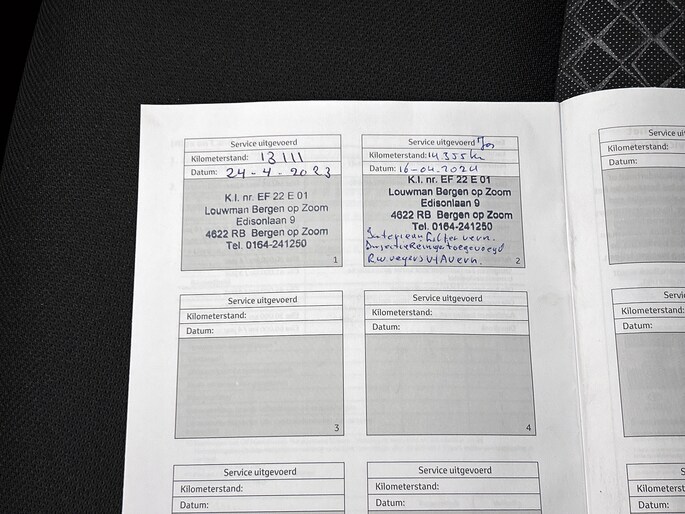 Service uitgevoerd
Kilometerstand: 13111
Datum: 24-4-2023
K.I. nr. EF 22 E 01
Louwman Bergen op Zoom
Edisonlaan 9
4622 RB Bergen op Zoom
Tel. 0164-241250
1
Service uitgevoerd
Kilometerstand: 14355km
Datum: 16-04-2024
K.I. nr. EF 22 E 01
Louwman Bergen op Zoom
Edisonlaan 9
4622 RB Bergen op Zoom
Tel. 0164-241250
Interieurfilter vern.
Injectie Reiniger toegevoegd
Ruwysers V/A vern.
2
Service ui
Kilometerstand:
Datum:
Service uitgevoerd
Kilometerstand:
Datum:
3
Service uitgevoerd
Kilometerstand:
Datum:
4
Service
Kilometerstand:
Datum:
Service uitgevoerd
Kilometerstand:
Datum:
Service uitgevoerd
Kilometerstand:
Datum:
Service
Kilometerstand:
Datum: